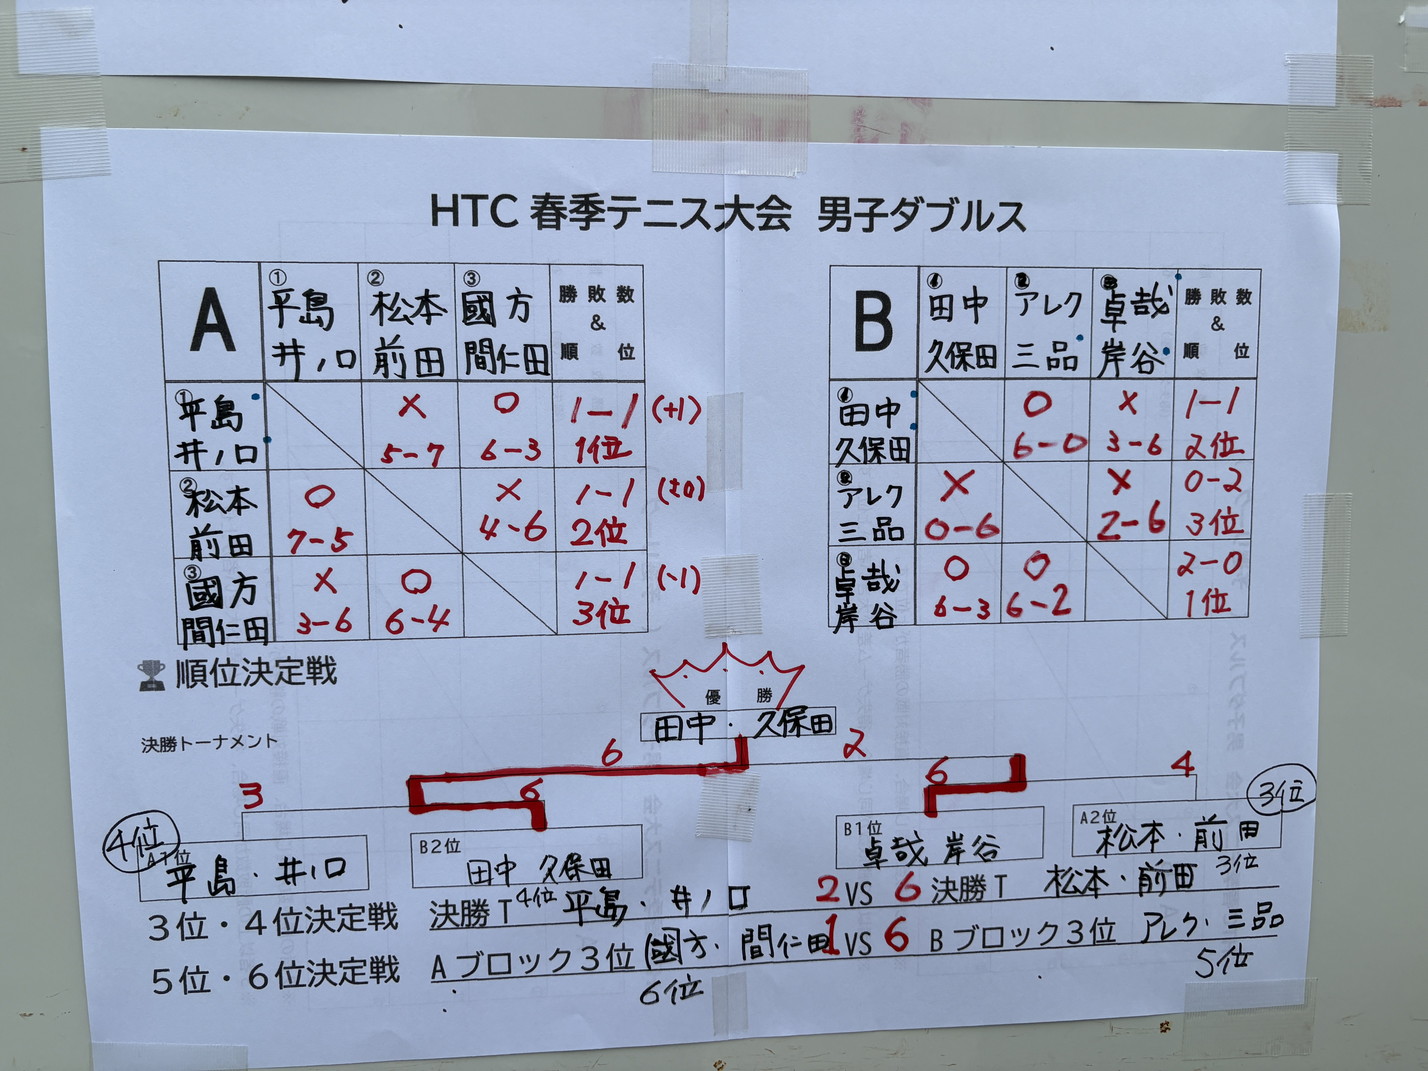 HTC 春季テニス大会 男子ダブルス
A ①平島 井ノ口 ②松本 前田 ③國方 間仁田 勝敗数 & 順位
①平島 井ノ口 × 5-7 ○ 6-3 1-1 (+1) 1位
②松本 前田 ○ 7-5 × 4-6 1-1 (±0) 2位
③國方 間仁田 × 3-6 ○ 6-4 1-1 (-1) 3位
B 田中 久保田 アレク 三品 卓哉 岸谷 勝敗数 & 順位
田中 久保田 ○ 6-0 × 3-6 1-1 2位
アレク 三品 × 0-6 × 2-6 0-2 3位
卓哉 岸谷 ○ 6-3 ○ 6-2 2-0 1位
順位決定戦
優勝
田中・久保田
決勝トーナメント
6 2
3 6 6 4
4位 A1位 平島・井ノ口
B2位 田中 久保田
B1位 卓哉 岸谷
A2位 松本・前田 3位
3位・4位決定戦 決勝T 4位 平島・井ノ口 2 VS 6 決勝T 松本・前田 3位
5位・6位決定戦 Aブロック3位 國方・間仁田 1 VS 6 Bブロック3位 アレク・三品
6位 5位